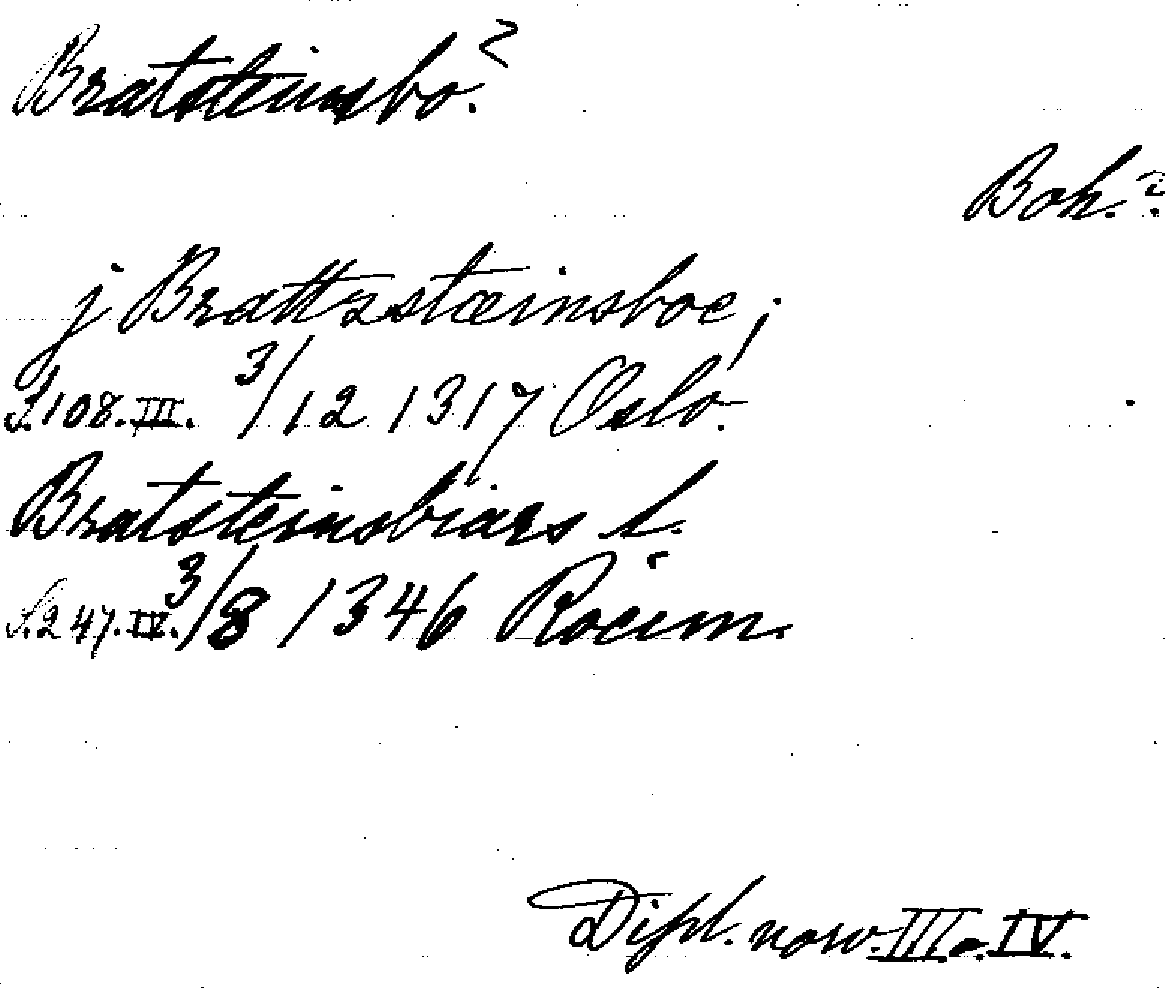 Bratsteinsbo?
Boh.?
j Brattzstæinsboe;
S. 108. III. 3/12 1317 Oslo.
Bratsteinsbiars l.
S. 247. IV. 3/8 1346
Dipl. norv. III o. IV.